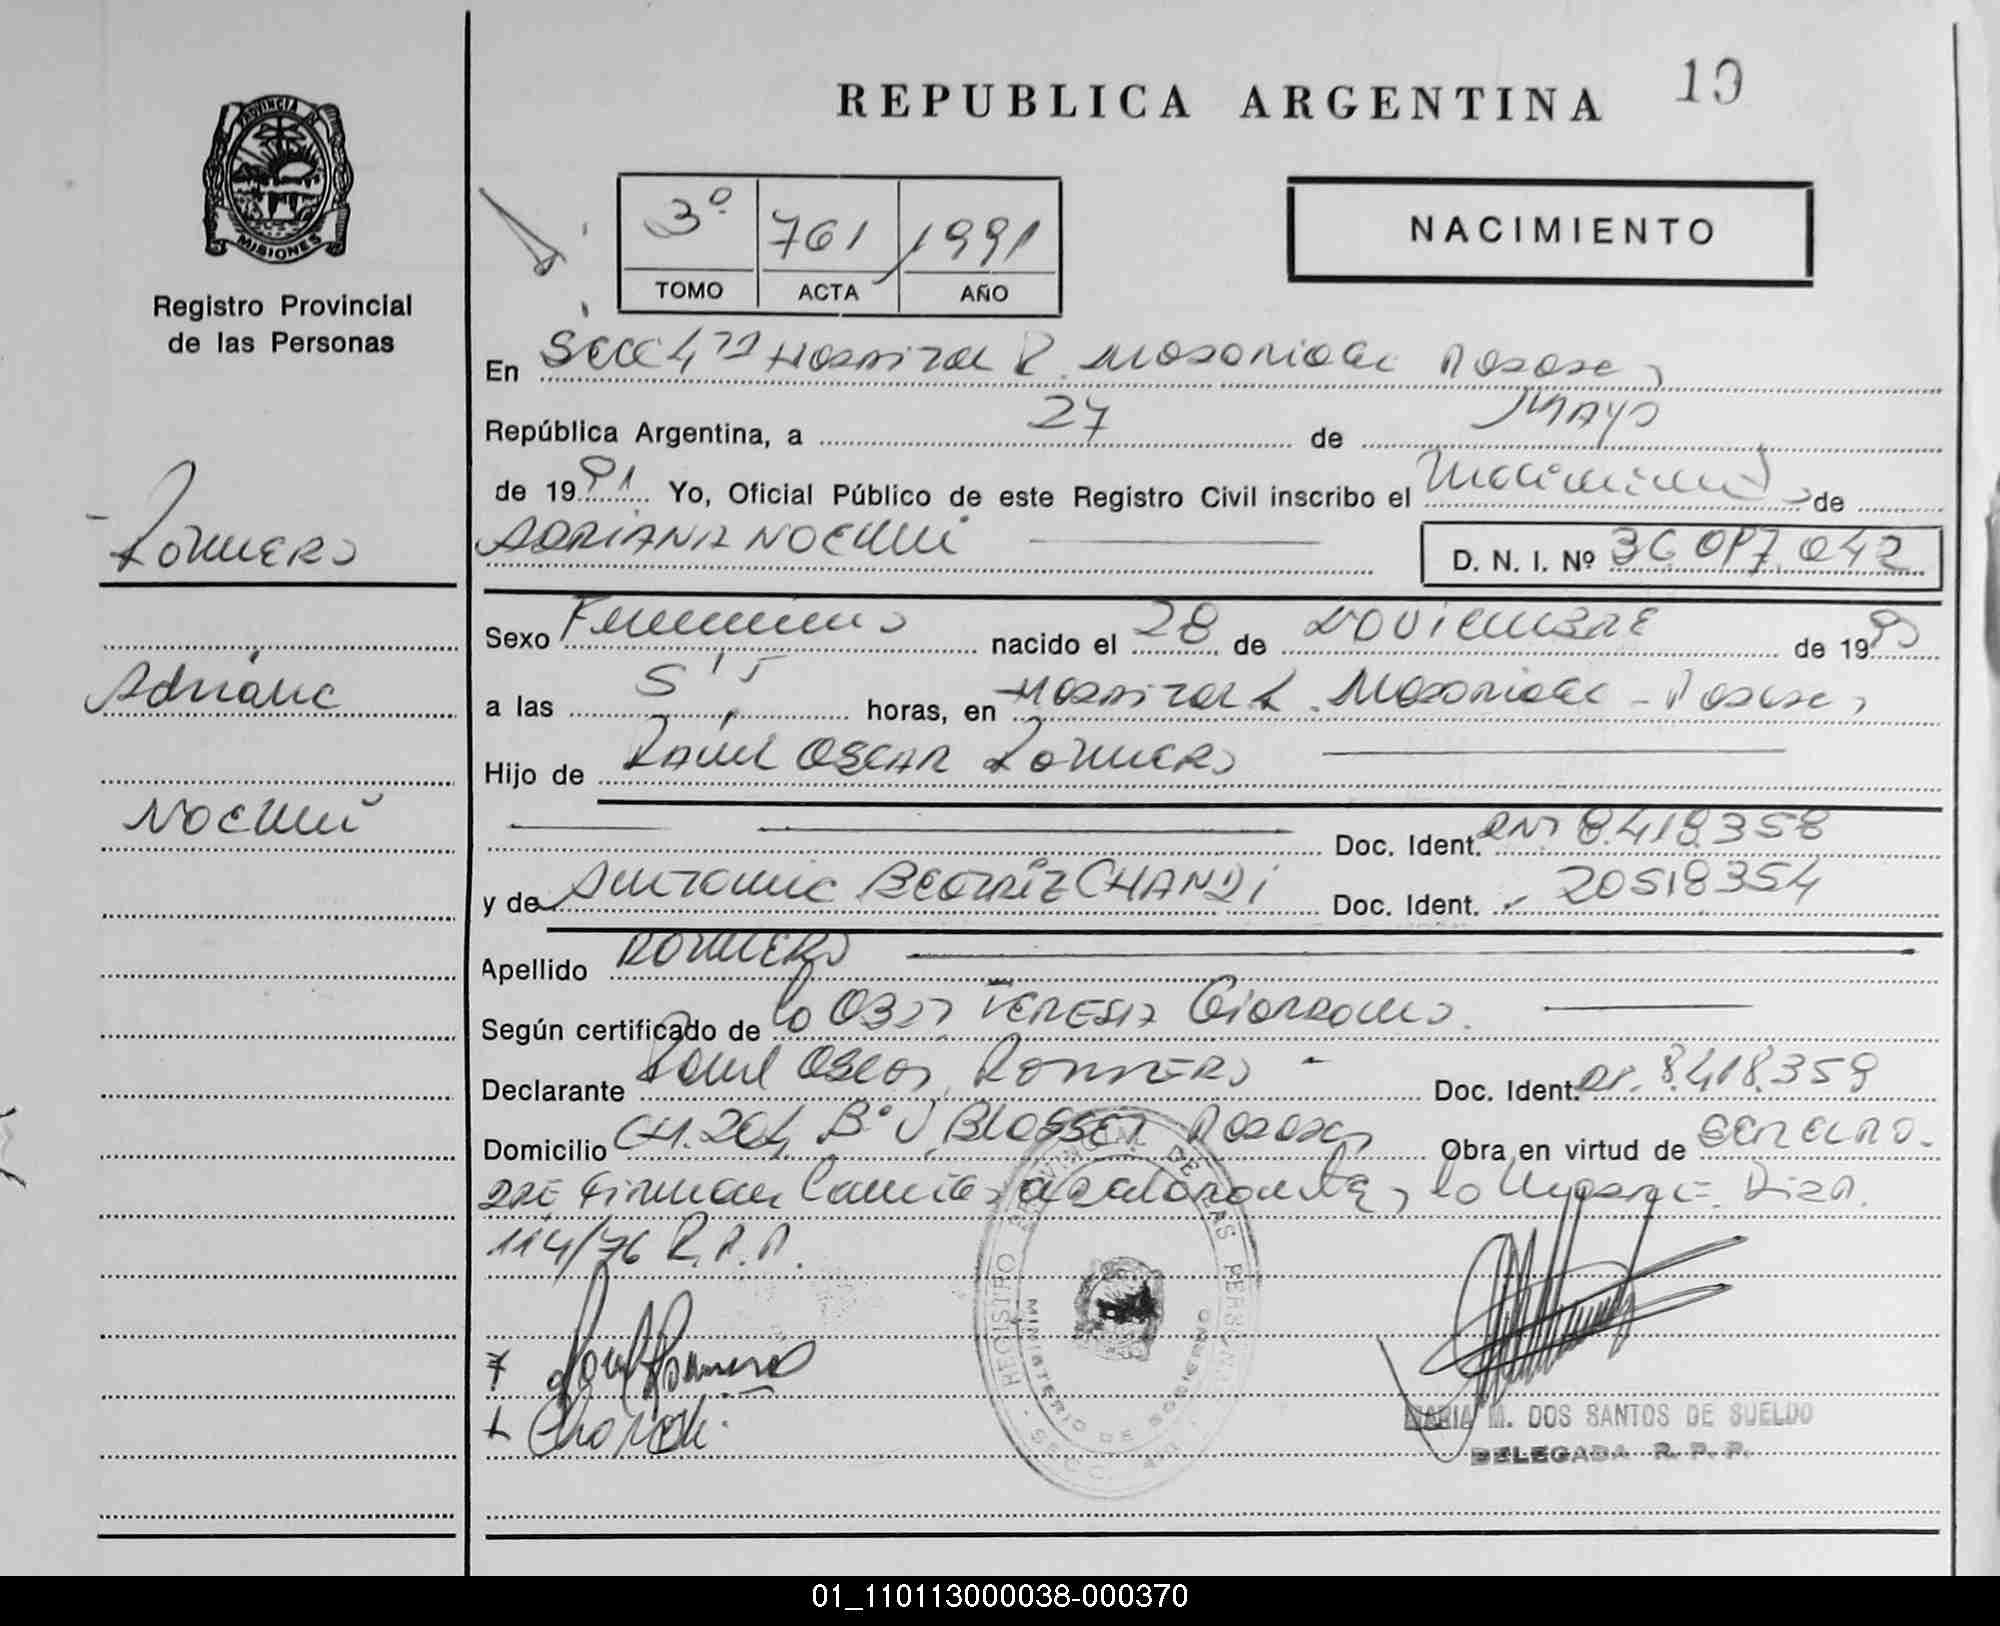 REPUBLICA ARGENTINA 19
PROVINCIA DE
MISIONES
Registro Provincial
de las Personas
3º 761 1991
TOMO ACTA AÑO
NACIMIENTO
En Secc 4ta Hospital R. Madariaga Posadas
República Argentina, a 27 de Mayo
de 1991 Yo, Oficial Público de este Registro Civil inscribo el Nacimiento de
ADRIANA NOEMI D. N. I. Nº 36.097.042
Romero
Adriana
Noemí
Sexo Femenino nacido el 28 de Noviembre de 1990
a las 5'5 horas, en Hospital R. Madariaga - Posadas
Hijo de Raul OSCAR Romero
Doc. Ident. DNI 8.418.358
y de Antonia Beatriz CHANDI Doc. Ident. 20518354
Apellido Romero
Según certificado de la Obst Teresa Giordano.
Declarante Raul Oscar Romero - Doc. Ident. 8.418.359
Domicilio CH. 204 Bº Posadas Obra en virtud de
Firman la Disp.
114/76 R.P.P.
REGISTRO PROVINCIAL DE LAS PERSONAS
MINISTERIO DE GOBIERNO
MARIA M. DOS SANTOS DE SUELDO
DELEGADA R. P. P.
01_110113000038-000370